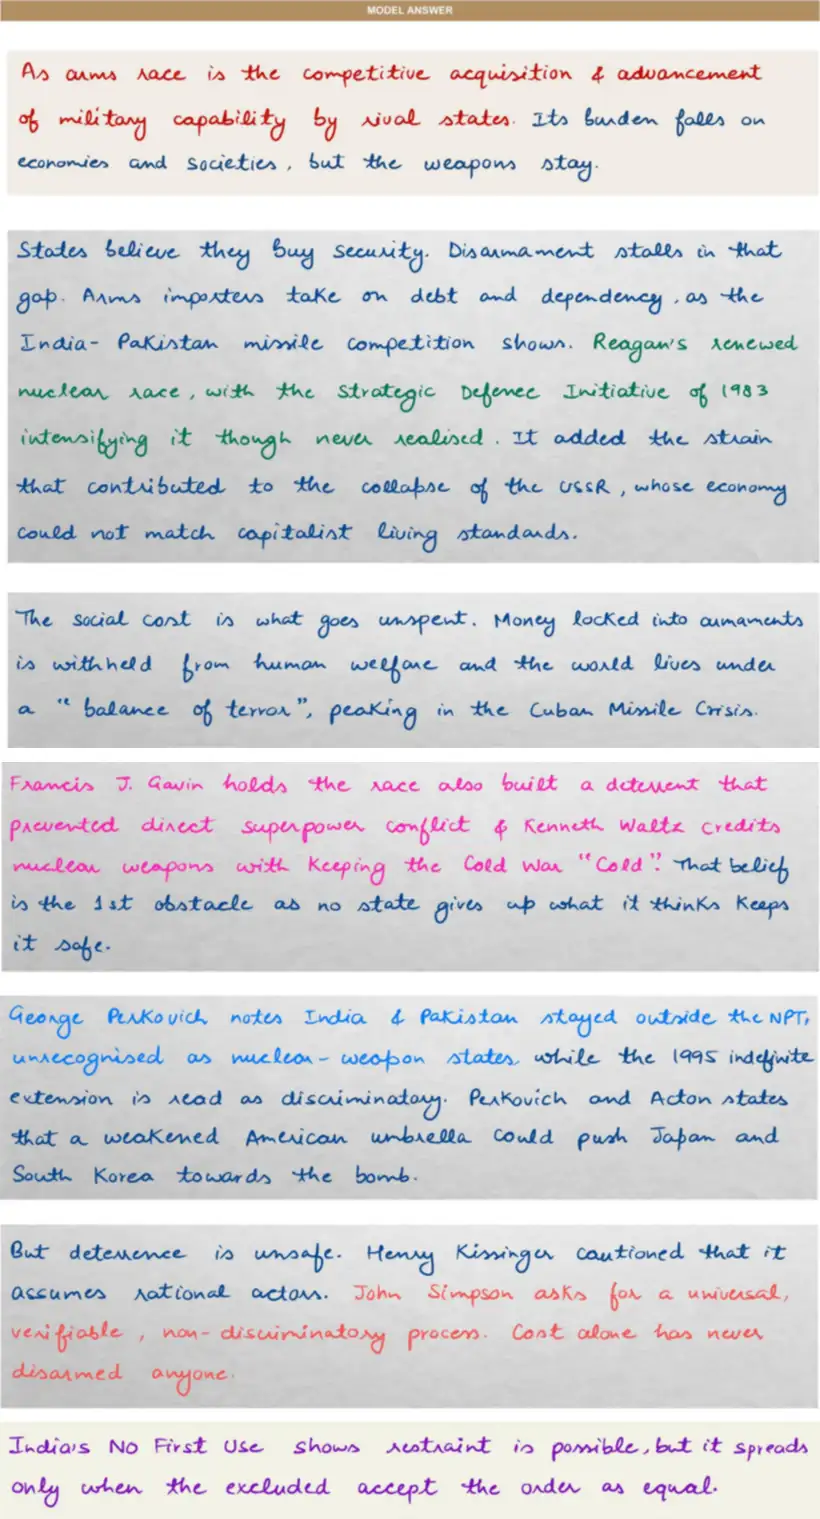 MODEL ANSWER
As arms race is the competitive acquisition & advancement
of military capability by rival states. Its burden falls on
economies and societies, but the weapons stay.
States believe they buy security. Disarmament stalls in that
gap. Arms importers take on debt and dependency, as the
India-Pakistan missile competition shows. Reagan's renewed
nuclear race, with the Strategic Defence Initiative of 1983
intensifying it though never realised. It added the strain
that contributed to the collapse of the USSR, whose economy
could not match capitalist living standards.
The social cost is what goes unspent. Money locked into armaments
is withheld from human welfare and the world lives under
a "balance of terror", peaking in the Cuban Missile Crisis.
Francis J. Gavin holds the race also built a deterrent that
prevented direct superpower conflict & Kenneth Waltz credits
nuclear weapons with keeping the Cold War "Cold". That belief
is the 1st obstacle as no state gives up what it thinks keeps
it safe.
George Perkovich notes India & Pakistan stayed outside the NPT,
unrecognised as nuclear-weapon states while the 1995 indefinite
extension is read as discriminatory. Perkovich and Acton states
that a weakened American umbrella could push Japan and
South Korea towards the bomb.
But deterrence is unsafe. Henry Kissinger cautioned that it
assumes rational actors. John Simpson asks for a universal,
verifiable, non-discriminatory process. Cost alone has never
disarmed anyone.
India's No First Use shows restraint is possible, but it spreads
only when the excluded accept the order as equal.